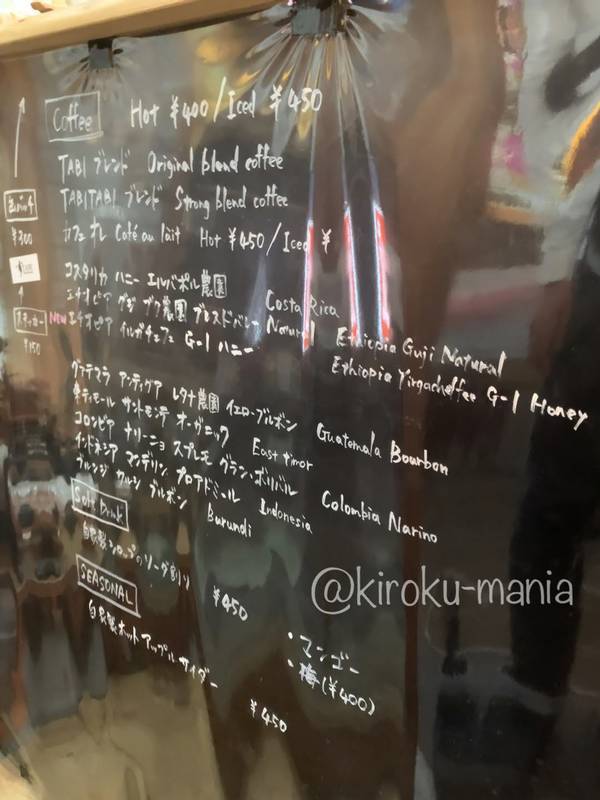 Coffee Hot ¥400/Iced ¥450
TABI ブレンド Original blend coffee
TABITABI ブレンド Strong blend coffee
カフェオレ Café au lait Hot ¥450/Iced ¥
缶バッチ
¥300
ステッカー
¥150
コスタリカ ハニー エルバポル農園 Costa Rica
エチオピア グジ ブク農園 ブレスドバレー Natural Ethiopia Guji Natural
NEW エチオピア イルガチェフェ G-1 ハニー Ethiopia Yirgacheffee G-1 Honey
グァテマラ アンティグア レタナ農園 イエローブルボン Guatemala Bourbon
東ティモール サントモンテ オーガニック East timor
コロンビア ナリーニョ スプレモ グランボリバル Colombia Narino
インドネシア マンデリン ブロアドミール Indonesia
ブルンジ カルシ ブルボン Burundi
Soft Drink
自家製シロップのソーダ割り ¥450
・マンゴー
・梅(¥400)
SEASONAL
自家製ホットアップルサイダー ¥450
@kiroku-mania